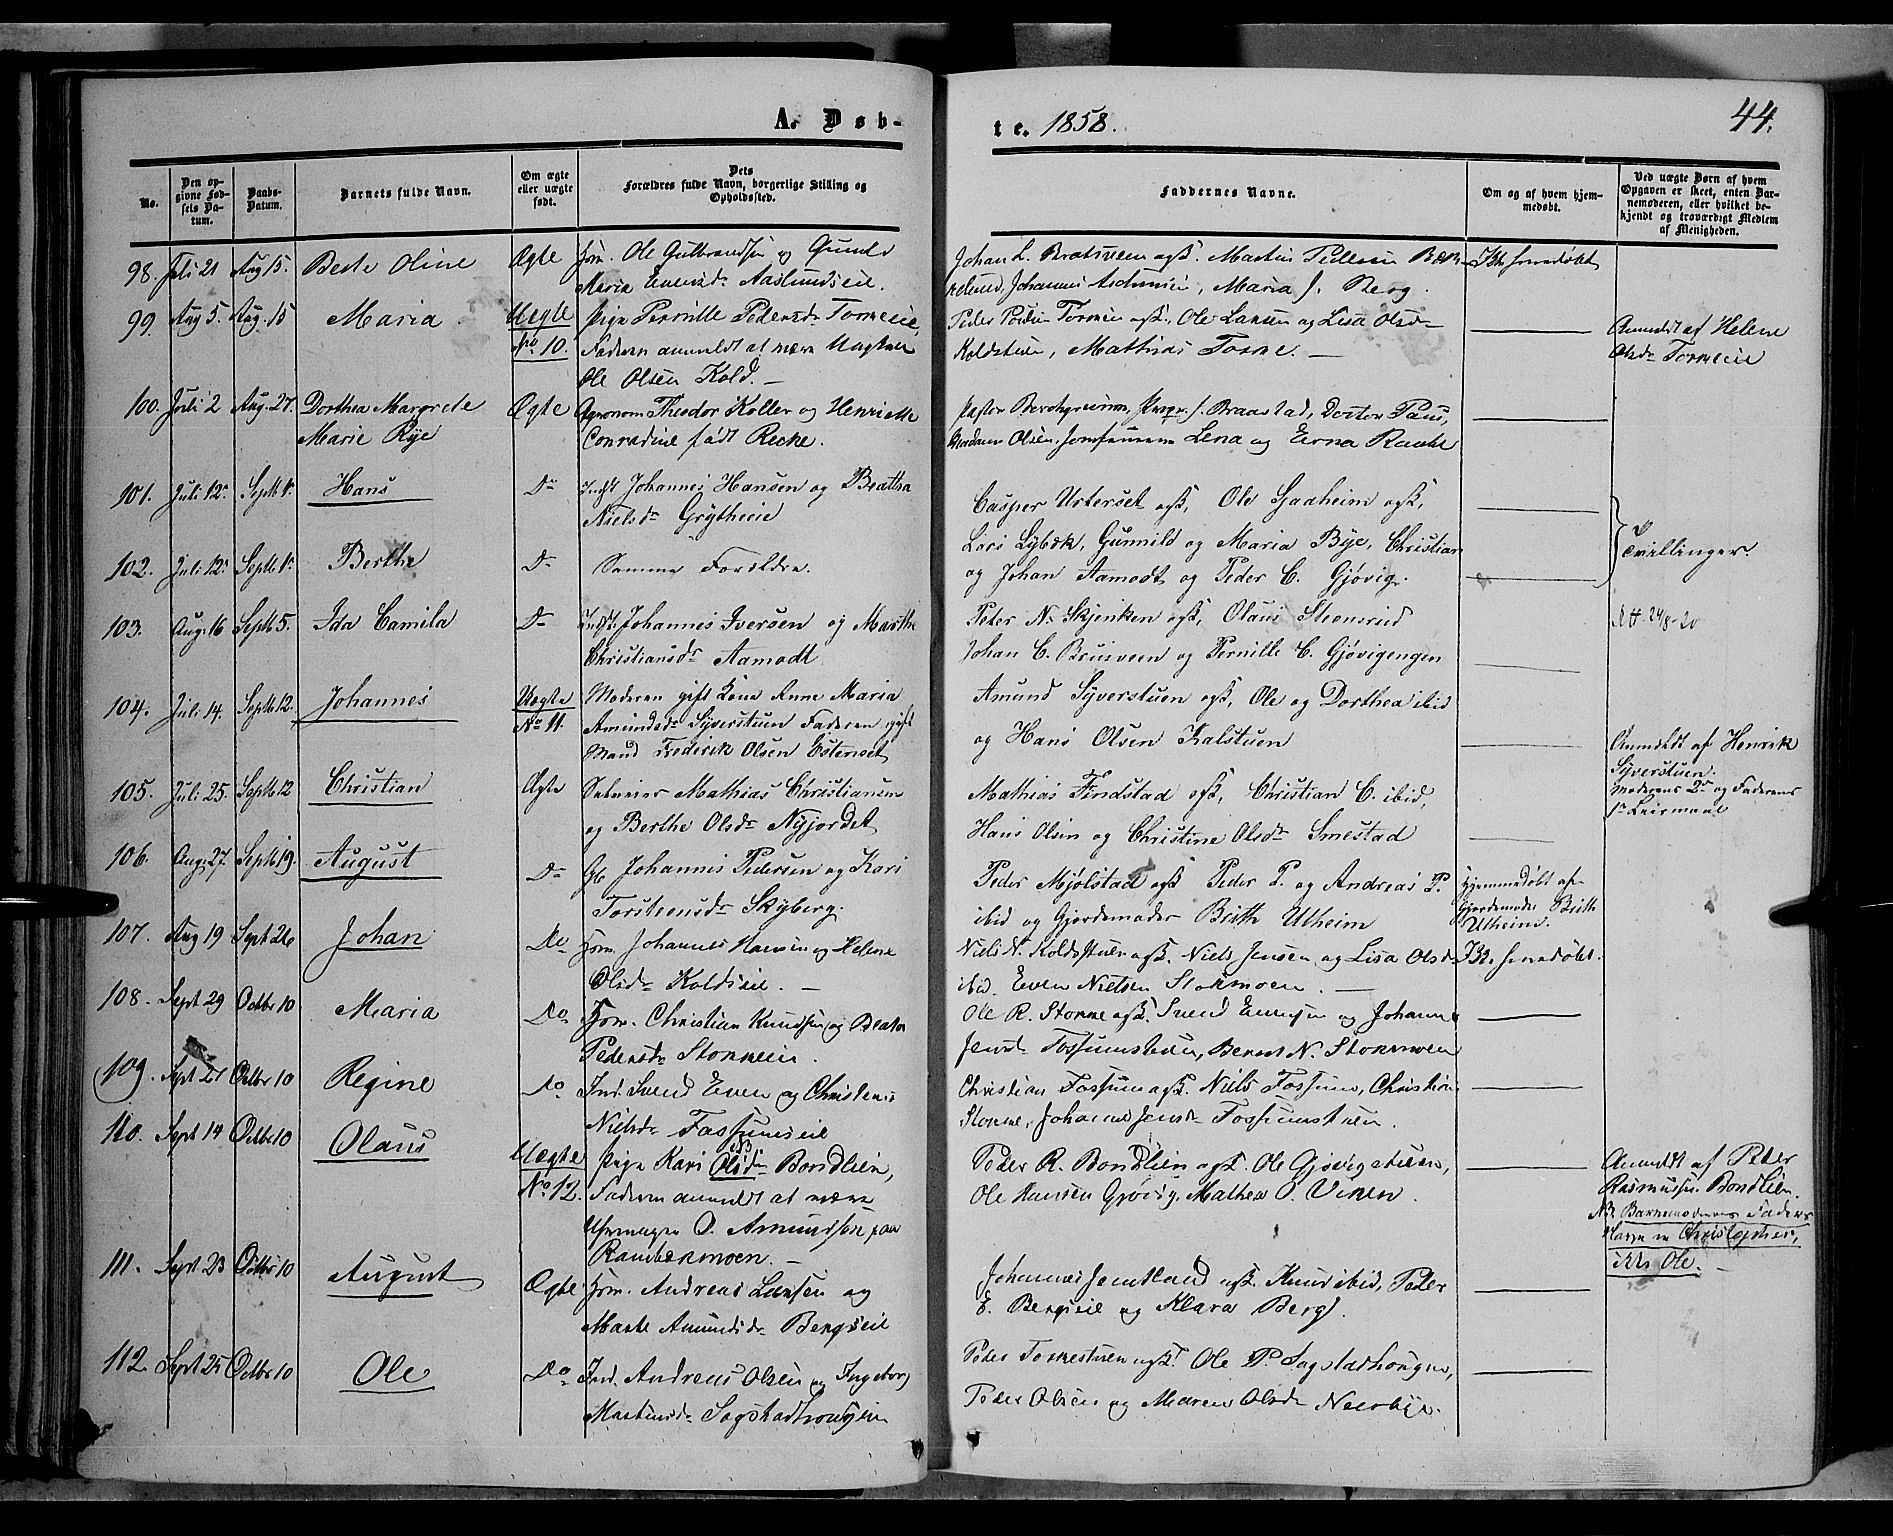 A. Døb-
te. 1858.
44.
No.
Den op-
givne Fød-
sels Da-
tum.
Daabs-
Datum.
Barnets fulde Navn.
Om ægte
eller uægte
født.
Dets
Forældres fulde Navn, borgerlige Stilling og
Opholdssted.
Faddernes Navne.
Om og af hvem hjem-
medøbt.
Ved uægte Børn af hvem
Opgaven er skeet, enten Bar-
nemoderen, eller hvilket be-
kjendt og troværdigt Medlem
af Menigheden.
98. Juli 21 Aug 15. Berte Oline Ægte Ole Gulbrandsen og Gunild
Maria Evensdr Aaslundseie.
Johan L. Bratsveen ogsk. Martin Pedersen
Johannes, Maria J. Berg.
99. Aug 5. Aug. 15 Maria Uegte Pige Pernille Pedersdr
No 10. Faderen anmeldt at være Ungkarl
Ole Olsen Kold. —
Peder ogsk., Ole Larsen og Lisa Olsdr
Koldstuen, Mathias. —
Anmeldt af Helene
Olsdr
100. Juli 2 Aug. 27. Dorthea Margrete Ægte Agronom Theodor Koller og Henriette
Marie Rye Conradine født Recke.
Pastor, J. Braastad, Doctor Paus,
Madame Olsen, Jomfruerne Lena og Erna
101. Juli 12. Septb 1. Hans Do Indst Johannes Hansen og Beatha
Nielsdr Grytheeie
Casper Urterset ogsk, Ole Gaaheim ogsk,
102. Juli 12. Septb 1. Berthe Do Samme Forældre.
Lars Lybæk, Gunnild og Maria Bye, Christian
og Johan Aamodt og Peder C. Gjøvig.
Tvillinger.
103. Aug. 16 Septb 5. Ida Camila Do Indst Johannes Iversen og Marthe
Christiansdr Aamodt
Peter N. Skjenken ogsk, Olaus Steensrud
Johan C. Bruiveen og Pernille C. Gjøvigengen
24/8-20
104. Juli 14. Septb 12. Johannes Uegte Moderen gift Kone Anne Maria
No 11. Amundsdr Syverstuen Faderen gift
Mand Frederik Olsen Estenset
Amund Syverstuen ogsk, Ole og Dorthea ibid
og Hans Olsen Kalstuen
Anmeldt af Henrik
Syverstuen.
Moderens 2de og Faderens
1te Leiermaal
105. Juli 25. Septb 12 Christian Ægte Mathias Christiansen
og Berthe Olsdr Nyjordet
Mathias Findstad ogsk, Christian C. ibid,
Hans Olsen og Christine Olsdr Smestad
106. Aug. 27. Septb 19. August Do Johannes Pedersen og Kari
Torstensdr Skyberg.
Peder Mjølstad ogsk Peder P. og Andreas P.
ibid og Gjordemoder Brith Utheim
Hjemmedøbt af
Gjordemoder Brith
Utheim.
107. Aug 19 Sept 26 Johan Do Johannes Hansen og Helene
Olsdr Koldseie. —
Niels N. Koldstuen ogsk. Niels Jensen og Lisa Olsdr
ibid. Even Nielsen Stormoen. —
108. Sept 29 Octbr 10 Maria Do Christian Knudsen og Beata
Pedersdr
Ole R. ogsk. Svend Evensen og Johanne
Jensdr Fossumstuen, Bernt N. Stormoen
109. Sept 27 Octbr 10 Regine Do Ind. Svend Even og Christense
Nielsdr Fossumseie
Christian Fossum ogsk. Niels Fossum, Christian
Johanne Jensdr Fossumstuen.
110. Sept 14 Octbr 10 Olaus Uegte Pige Kari Olsdr Bondlien,
No 12. Faderen anmeldt at være
O. Amundsen paa
Rambekmoen. —
Peder R. Bondlien ogsk. Ole Gjøvigstuen,
Ole Hansen Gjøvig, Mathea O. Viken.
Anmeldt af Peter
Rasmussen Bondlien.
NB. Barnemoderens Faders
Navn er Christopher,
ikke Ole. —
111. Sept 23 Octbr 10 August Ægte Andreas Larsen og
Marte Amundsdr Bergseie
Johannes Jemtland ogsk. Knud ibid, Peder
E. Bergseie og Klara Berg.
112. Sept 25 Octbr 10 Ole Do Ind. Andreas Olsen og Ingeborg
Martinsdr
Peder ogsk Ole P. Sogstadhougen,
Peder Olsen og Maren Olsdr